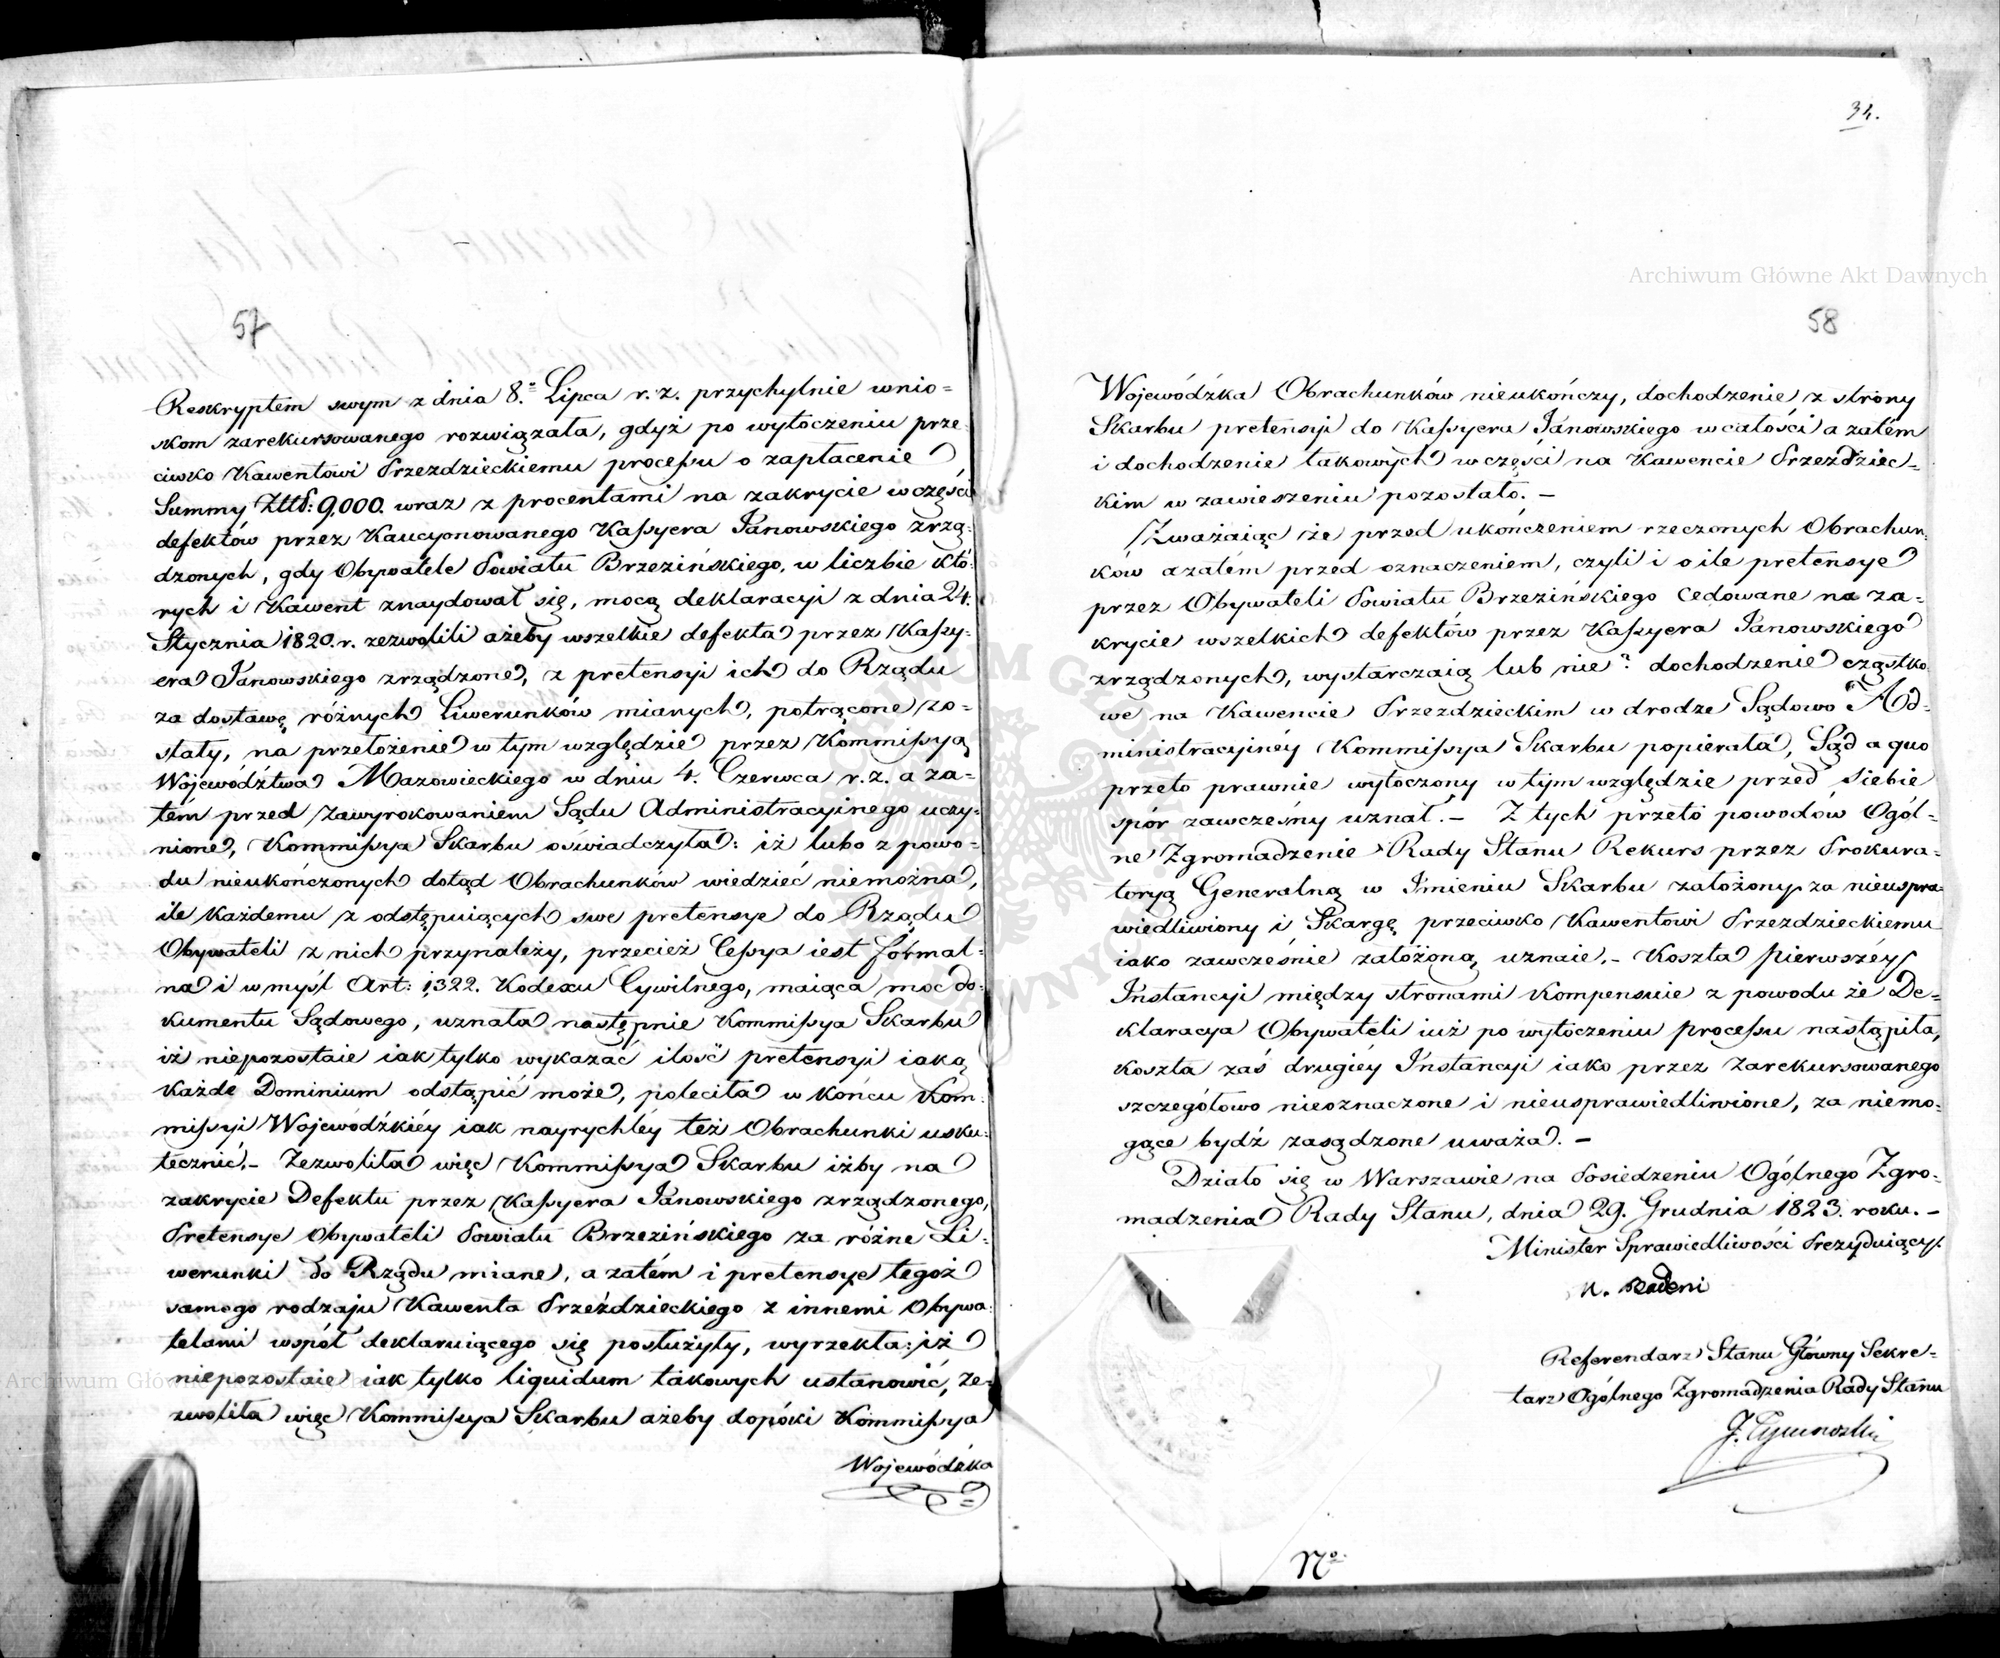 57
Reskryptem swym z dnia 8.º Lipca r. z. przychylnie wnio=
skom zarekursowanego rozwiązała, gdyż po wytoczeniu prze=
ciwko Kawentowi Przezdzieckiemu processu o zapłacenie
Summy Złtt: 9,000. wraz z procentami na zakrycie w części
defektów przez Kaucyonowanego Kassyera Janowskiego zrzą=
dzonych, gdy Obywatele Powiatu Brzezińskiego, w liczbie któ=
rych i Kawent znaydował się, mocą deklaracyi z dnia 24.
Stycznia 1820. r. zezwolili ażeby wszelkie defekta przez Kassy=
era Janowskiego zrządzone, z pretensyi ich do Rządu
za dostawę różnych Liwerunków mianych, potrącone zo=
stały, na przełożenie w tym względzie przez Kommissyą
Województwa Mazowieckiego w dniu 4. Czerwca r. z. a za=
tém przed zawyrokowaniem Sądu Administracyinego uczy=
nione, Kommissya Skarbu oświadczyła: iż lubo z powo=
du nieukończonych dotąd Obrachunków wiedzieć niemożna,
ile każdemu z odstępuiących swe pretensye do Rządu
Obywateli z nich przynależy, przecież Cessya iest formal=
na i w myśl Art: 1322. Kodexu Cywilnego, maiąca moc do=
kumentu Sądowego, uznała następnie Kommissya Skarbu
iż niepozostaie iak tylko wykazać ilość pretensyi iaką
każde Dominium odstąpić może, poleciła w końcu Kom=
missyi Wojewódzkiéy iak nayrychléy też Obrachunki usku=
tecznić.– Zezwoliła więc Kommissya Skarbu iżby na
zakrycie Defektu przez Kassyera Janowskiego zrządzonego,
Pretensye Obywateli Powiatu Brzezińskiego za różne Li=
werunki do Rządu miane, a zatém i pretensye tegoż
samego rodzaju Kawenta Przeździeckiego z innemi Obywa=
telami wspól deklaruiącego się posłużyły, wyrzekła: iż
niepozostaie iak tylko liquidum takowych ustanowić, ze=
zwoliła więc Kommissya Skarbu ażeby dopóki Kommissya
Wojewódzka
34.
58
Wojewódzka Obrachunków nieukończy, dochodzenie z strony
Skarbu pretensyi do Kassyera Janowskiego w całości a zatém
i dochodzenie takowych w części na Kawencie Przezdziec=
kim w zawieszeniu pozostało. –
Zważaiąc że przed ukończeniem rzeczonych Obrachun=
ków a zatém przed oznaczeniem, czyli i o ile pretensye
przez Obywateli Powiatu Brzezińskiego cedowane na za=
krycie wszelkich defektów przez Kassyera Janowskiego
zrządzonych, wystarczaią lub nie? dochodzenie cząstko=
we na Kawencie Przezdzieckim w drodze Sądowo Ad=
ministracyinéy Kommissya Skarbu popierała, Sąd a quo
przeto prawnie wytoczony w tym względzie przed siebie
spór zawczesny uznał.– Z tych przeto powodów Ogól=
ne Zgromadzenie Rady Stanu Rekurs przez Prokura=
toryą Generalną w Imieniu Skarbu założony za nieuspra=
wiedliwiony i Skargę przeciwko Kawentowi Przezdzieckiemu
iako zawcześnie założoną, uznaie.– Koszta Pierwszéy
Instancyi między stronami kompensuie z powodu że De=
klaracya Obywateli iuż po wytoczeniu processu nastąpiła,
koszta zaś drugiéy Instancyi iako przez zarekursowanego
szczegółowo nieoznaczone i nieusprawiedliwione, za niemo=
gące bydź zasądzone uważa. –
Działo się w Warszawie na Posiedzeniu Ogólnego Zgro=
madzenia Rady Stanu, dnia 29. Grudnia 1823. roku. –
Minister Sprawiedliwości Prezyduiący
M. Badeni
Referendarz Stanu Główny Sekre=
tarz Ogólnego Zgromadzenia Rady Stanu
Nº
Archiwum Główne Akt Dawnych